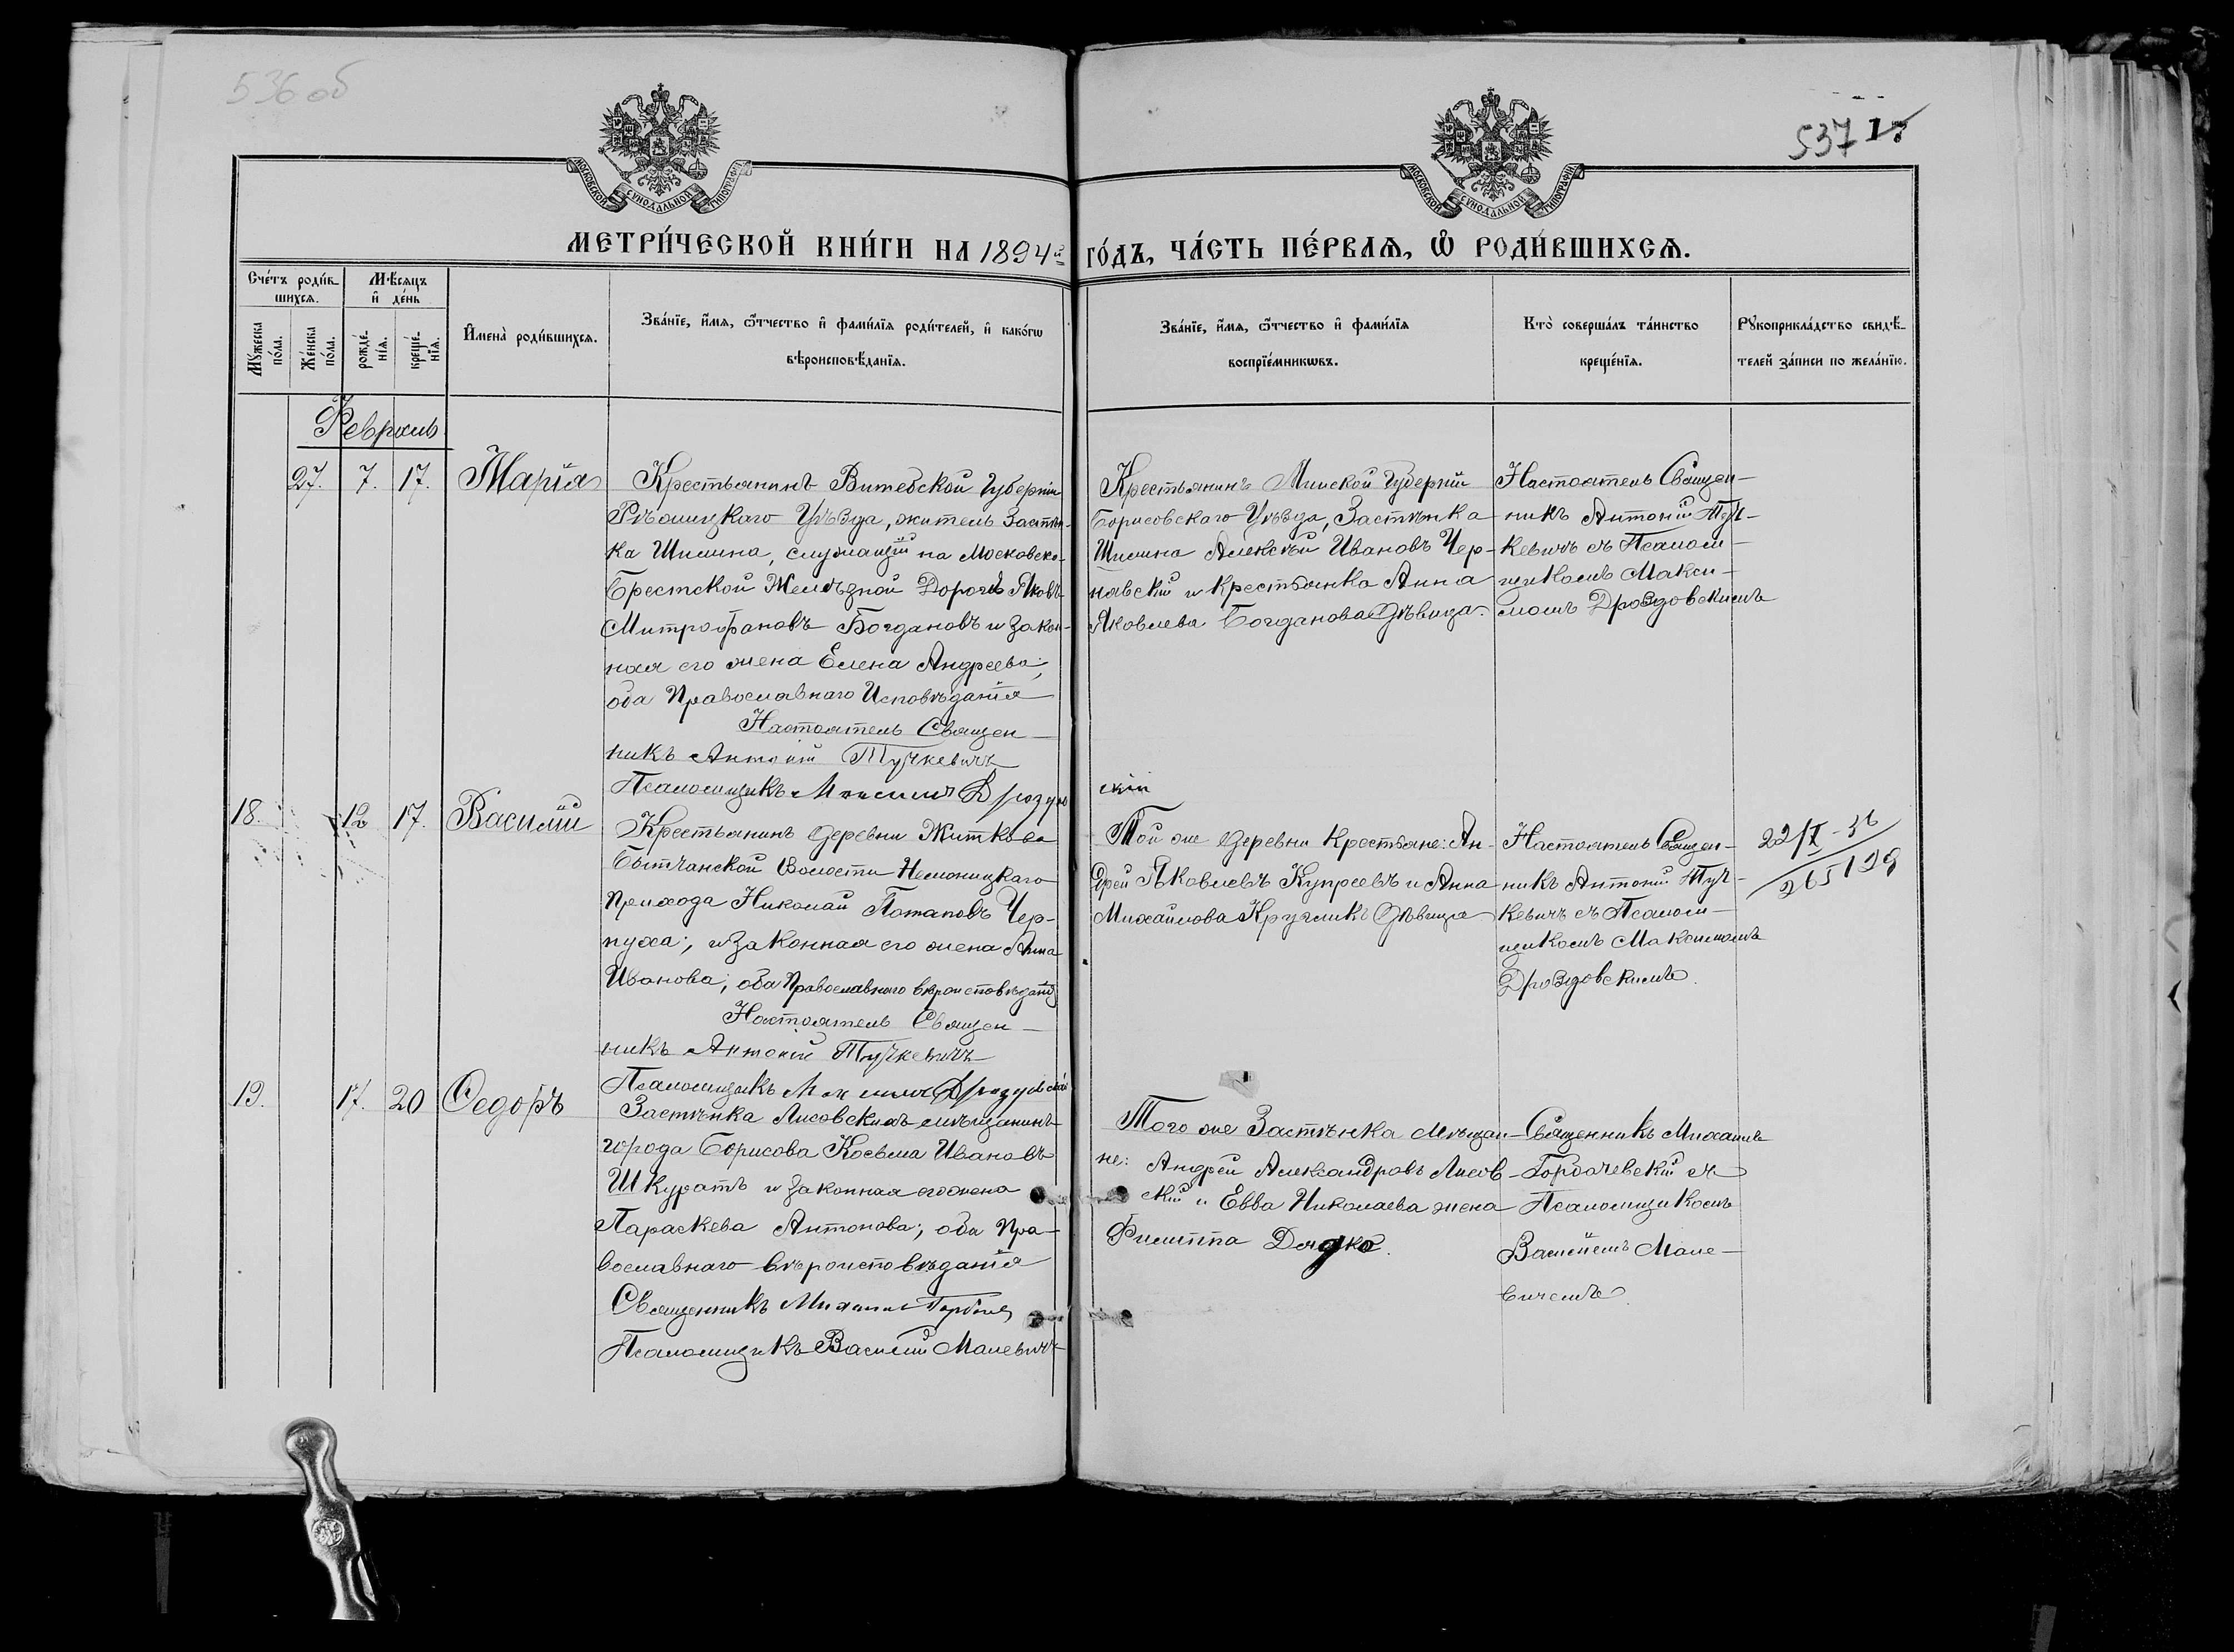 536 об
537 17
МОСКОВСКОЙ СѴНОДАЛЬНОЙ ТИПОГРАФІИ
МОСКОВСКОЙ СѴНОДАЛЬНОЙ ТИПОГРАФІИ
МЕТРИ́ЧЕСКОЙ КНИ́ГИ НА 1894й ГО́ДЪ, ЧА́СТЬ ПЕ́РВАѦ, Ѿ РОДИ́ВШИХСѦ.
Сче́тъ роди́вшихсѧ.
Мѣ́сѧцъ и҆ де́нь
Мꙋ́жеска по́ла.
Же́нска по́ла.
рожде́нїѧ.
креще́нїѧ.
И҆мена̀ роди́вшихсѧ.
Зва́нїе, и҆́мѧ, ѻ҆́тчество и҆ фами́лїѧ роди́телей, и҆ како́гѡ
вѣроисповѣ́данїѧ.
Зва́нїе, и҆́мѧ, ѻ҆́тчество и҆ фами́лїѧ
воспрїе́мникѡвъ.
Кто̀ соверша́лъ та́инство
креще́нїѧ.
Рꙋкоприкла́дство свидѣ́-
телей за́писи по жела́нїю.
Февраль
27. 7. 17. Марія
Крестьянинъ Витебской Губерніи
Рѣжицкаго Уѣзда, житель Застѣн-
ка Шилина, служащій на Московско-
Брестской Желѣзной Дорогѣ Яковъ
Митрофановъ Богдановъ и закон-
ная его жена Елена Андреева;
оба Православнаго Исповѣданія
Настоятель Священ-
никъ Антоній Тучкевичъ
Псаломщикъ Максимъ Дроздов
скій
Крестьянинъ Минской Губерніи
Борисовскаго Уѣзда, Застѣнка
Шилина Алексѣй Ивановъ Чер-
нявскій и крестьянка Анна
Яковлева Богданова дѣвица.
Настоятель Священ-
никъ Антоній Туч-
кевичъ съ Псалом-
щикомъ Макси-
момъ Дроздовскимъ
18. 12 17. Василій
Крестьянинъ деревни Житькова
Бытчанской Волости Немоницкаго
Прихода Николай Потаповъ Чер-
нуха; и законная его жена Анна
Иванова; оба Православнаго вѣроисповѣданія
Настоятель Священ-
никъ Антоній Тучкевичъ
Псаломщикъ Максимъ Дроздовскій
Той же деревни крестьяне: Ан-
дрей Яковлевъ Купреевъ и Анна
Михайлова Кругликъ дѣвица
Настоятель Священ-
никъ Антоній Туч-
кевичъ съ Псалом-
щикомъ Максимомъ
Дроздовскимъ.
19. 17. 20 Ѳедоръ
Застѣнка Лисовскихъ мѣщанинъ
города Борисова Косьма Ивановъ
Шкуратъ и законная его жена
Параскева Антонова; оба Пра-
вославнаго вѣроисповѣданія
Священникъ Михаилъ
Псаломщикъ Василій Малевичъ
Того же Застѣнка мѣщан-
не: Андрей Александровъ Лисов-
скій и Евва Николаева жена
Филиппа Дядко.
Священникъ Михаилъ
Горбачевскій съ
Псаломщикомъ
Василіемъ Мале-
вичемъ.